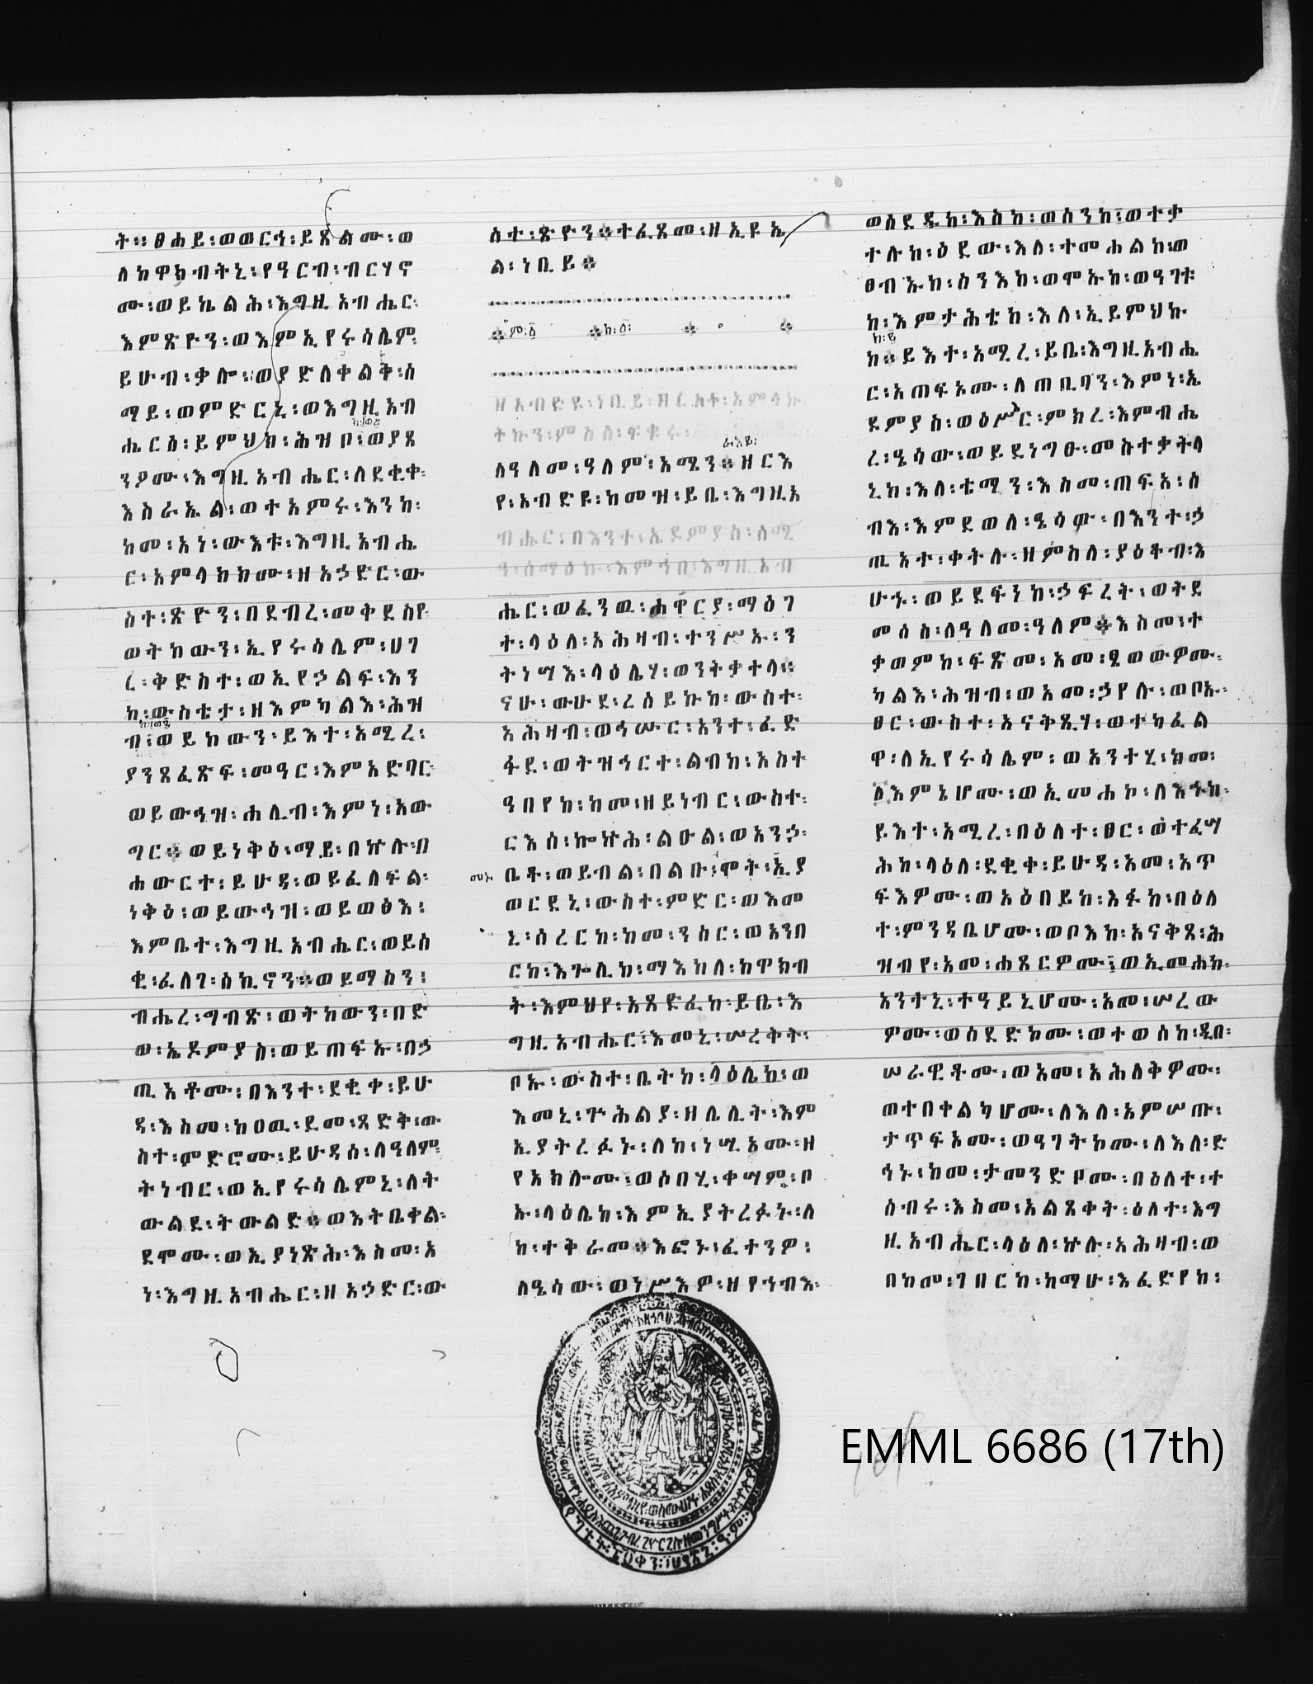 ት። ፀሐይ፡ወወርኅ፡ይጸልሙ፡ወ
ለከዋክብትኒ፡የዓርብ፡ብርሃኖ
ሙ፡ወይኬልሕ፡እግዚአብሔር፡
እምጽዮን፡ወእምኢየሩሳሌም፡
ይሁብ፡ቃሎ፡ወያድለቀልቅ፡ሰ
ማይ፡ወምድርኒ፡ወእግዚአብ
ሔርሰ፡ይምህክ፡ሕዝቦ፡ወያጸ
ንዖሙ፡እግዚአብሔር፡ለደቂቀ፡
እስራኤል፡ወተአምሩ፡እንከ፡
ከመ፡አነ፡ውእቱ፡እግዚአብሔ
ር፡አምላክክሙ፡ዘአኃድር፡ው
ስተ፡ጽዮን፡በደብረ፡መቅደስየ፡
ወትከውን፡ኢየሩሳሌም፡ሀገ
ረ፡ቅድስተ፡ወኢየኃልፍ፡እን
ከ፡ውስቴታ፡ዘእምካልእ፡ሕዝ
ብ፡ወይከውን፡ይእተ፡አሚረ፡
ያንጸፈጽፍ፡መዓር፡እምአድባር፡
ወይውኅዝ፡ሐሊብ፡እምነ፡አው
ግር፡ወይነቅዕ፡ማይ፡በኵሉ፡በ
ሐውርተ፡ይሁዳ፡ወይፈለፍል፡
ነቅዕ፡ወይውኅዝ፡ወይወፅእ፡
እምቤተ፡እግዚአብሔር፡ወይስ
ቂ፡ፈለገ፡ሰኪኖን፡ወይማስን፡
ብሔረ፡ግብጽ፡ወትከውን፡በድ
ወ፡ኤዶምያስ፡ወይጠፍኡ፡በኃ
ጢአቶሙ፡በእንተ፡ደቂቀ፡ይሁ
ዳ፡እስመ፡ከዐዉ፡ደመ፡ጻድቅ፡ው
ስተ፡ምድሮሙ፡ይሁዳሰ፡ለዓለም፡
ትነብር፡ወኢየሩሳሌምኒ፡ለት
ውልደ፡ትውልድ፡ወእትቤቀል፡
ደሞሙ፡ወኢያነጽሕ፡እስመ፡አ
ነ፡እግዚአብሔር፡ዘአኃድር፡ው
ስተ፡ጽዮን፡ተፈጸመ፡ዘኢዩኤ
ል፡ነቢይ
ዘአብድዩ፡ነቢይ፡
ለዓለመ፡ዓለም፡አሜን፡ዘርእ
የ፡አብድዩ፡ከመዝ፡ይቤ፡እግዚአ
ብሔር፡በእንተ፡ኤዶምያስ፡ሰሚ
ዓ፡ሰማዕኩ፡እምኀበ፡እግዚአብ
ሔር፡ወፈንዉ፡ሐዋርያ፡ማዕገ
ተ፡ላዕለ፡አሕዛብ፡ተንሥኡ፡ን
ትነሣእ፡ላዕሌሃ፡ወንትቃተላ።
ናሁ፡ውሁደ፡ረሰይኩከ፡ውስተ፡
አሕዛብ፡ወኅሡር፡አንተ፡ፈድ
ፋደ፡ወትዝኅርተ፡ልብከ፡አስተ
ዓበየከ፡ከመ፡ዘይነብር፡ውስተ፡
ርእሰ፡ኰኵሕ፡ልዑል፡ወአንኃ፡
ቤቶ፡ወይብል፡በልቡ፡መኑ፡ኢያ
ወርደኒ፡ውስተ፡ምድር፡ወእመ
ኒ፡ሰረርከ፡ከመ፡ንስር፡ወአንበ
ርከ፡እጐሊከ፡ማእከለ፡ከዋክብ
ት፡እምህየ፡አጸድፈከ፡ይቤ፡እ
ግዚአብሔር፡እመኒ፡ሠረቅት፡
ቦኡ፡ውስተ፡ቤትከ፡ላዕሌከ፡ወ
እመኒ፡ዘሌሊት፡እም
ኢያትረፉኑ፡ለከ፡ዘ
የአክሎሙ፡ወሰበሂ፡ቀሣም፡ቦ
ኡ፡ላዕሌከ፡እምኢያትረፉኑ፡ለ
ከ፡ተቅራመ፡እፎኑ፡ፈተንዎ፡
ለዔሳው፡ወነሥእዎ፡ዘየኀብእ፡
ወሰደዱከ፡እስከ፡ወሰንከ፡ወተቃ
ተሉከ፡ዕደው፡እለ፡ተመሐልከ፡ወ
ፀብኡከ፡ሰንእከ፡ወሞኡከ፡ወዓገቱ
ከ፡እምታሕቴከ፡እለ፡ኢይምህኩ
ከ፡ይእተ፡አሚረ፡ይቤ፡እግዚአብሔ
ር፡አጠፍአሙ፡ለጠቢባን፡እምነ፡ኤ
ዶምያስ፡ወዕሥር፡ምክረ፡እምብሔ
ረ፡ዔሳው፡ወይደነግፁ፡መስተቃትላ
ኒከ፡እለ፡ቴማን፡እስመ፡ጠፍአ፡ሰ
ብእ፡እምደወለ፡ዔሳው፡በእንተ፡ኃ
ጢአተ፡ቀትሉ፡ዘምስለ፡ያዕቆብ፡እ
ሁኁ፡ወይደፍነከ፡ኃፍረት፡ወትደ
መሰስ፡ለዓለመ፡ዓለም፡እስመ፡ተ
ቃወምከ፡ፍጽመ፡አመ፡ፄወውዎሙ፡
ካልእ፡ሕዝብ፡ወአመ፡ኃየሉ፡ወቦኡ፡
ፀር፡ውስተ፡አናቅጺሃ፡ወተካፈል
ዋ፡ለኢየሩሳሌም፡ወአንተሂ፡ከመ፡
፩እምኔሆሙ፡ወኢመሐኮ፡ለእኁከ፡
ይእተ፡አሚረ፡በዕለተ፡ፀር፡ወተፈሣ
ሕከ፡ላዕለ፡ደቂቀ፡ይሁዳ፡አመ፡አጥ
ፍእዎሙ፡ወአዕበይከ፡አፉከ፡በዕለ
ተ፡ምንዳቤሆሙ፡ወቦእከ፡አናቅጸ፡ሕ
ዝብየ፡አመ፡ሐጸርዎሙ፡ወኢመሐከ፡
አንተኒ፡ተዓይኒሆሙ፡አመ፡ሠረው
ዎሙ፡ወሰደድኮሙ፡ወተወሰከ፡ዲበ፡
ሠራዊቶሙ፡ወአመ፡አሕለቅዎሙ፡
ወተበቀልካሆሙ፡ለእለ፡አምሠጡ፡
ታጥፍአሙ፡ወዓገትኮሙ፡ለእለ፡ድ
ኅኑ፡ከመ፡ታመንድቦሙ፡በዕለተ፡ተ
ሰብሩ፡እስመ፡አልጸቀት፡ዕለተ፡እግ
ዚአብሔር፡ላዕለ፡ኵሉ፡አሕዛብ፡ወ
በከመ፡ገበርከ፡ከማሁ፡እፈድየከ፡
EMML 6686 (17th)